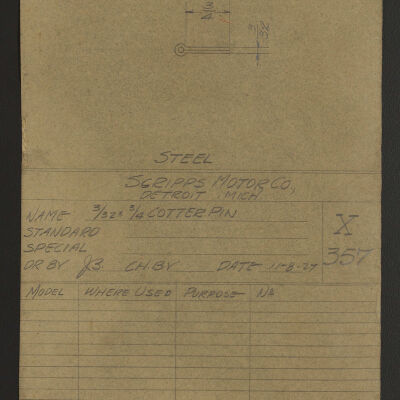 3/4
3/32
STEEL
SCRIPPS MOTOR CO,
DETROIT, MICH
NAME 3/32 x 3/4 COTTER PIN
STANDARD
SPECIAL
X
357
DR BY CH. BY DATE 11-8-27
MODEL WHERE USED PURPOSE